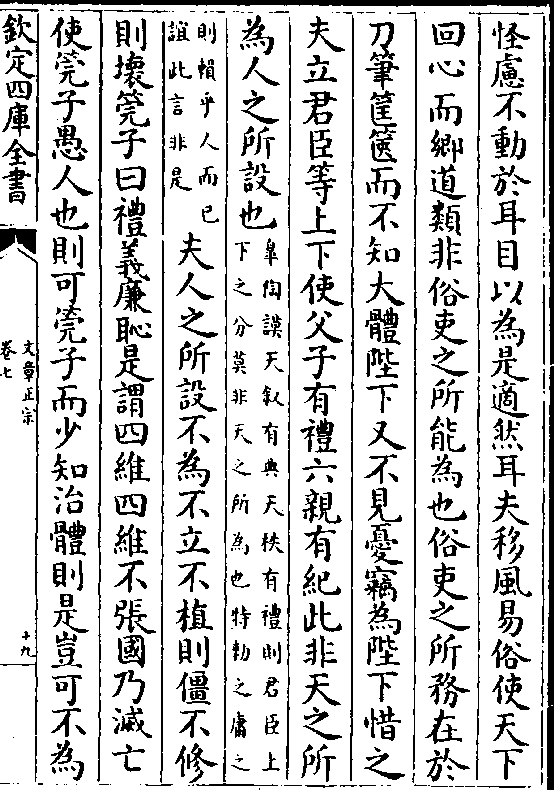 怪慮不動於耳目以為是適然耳夫移風易俗使天下
回心而鄉道類非俗吏之所能為也俗吏之所務在於
刀筆筐篋而不知大體陛下又不見憂竊為陛下惜之
夫立君臣等上下使父子有禮六親有紀此非天之所
為人之所設也
臯陶謨天叙有典天秩有禮則君臣上
下之分莫非天之所為也特勅之庸之
則頼乎人而已
誼此言非是
夫人之所設不為不立不植則僵不修
則壞筦子曰禮義廉恥是謂四維四維不張國乃滅亡
使筦子愚人也則可筦子而少知治體則是豈可不為
欽定四庫全書
文章正宗
卷七
十九